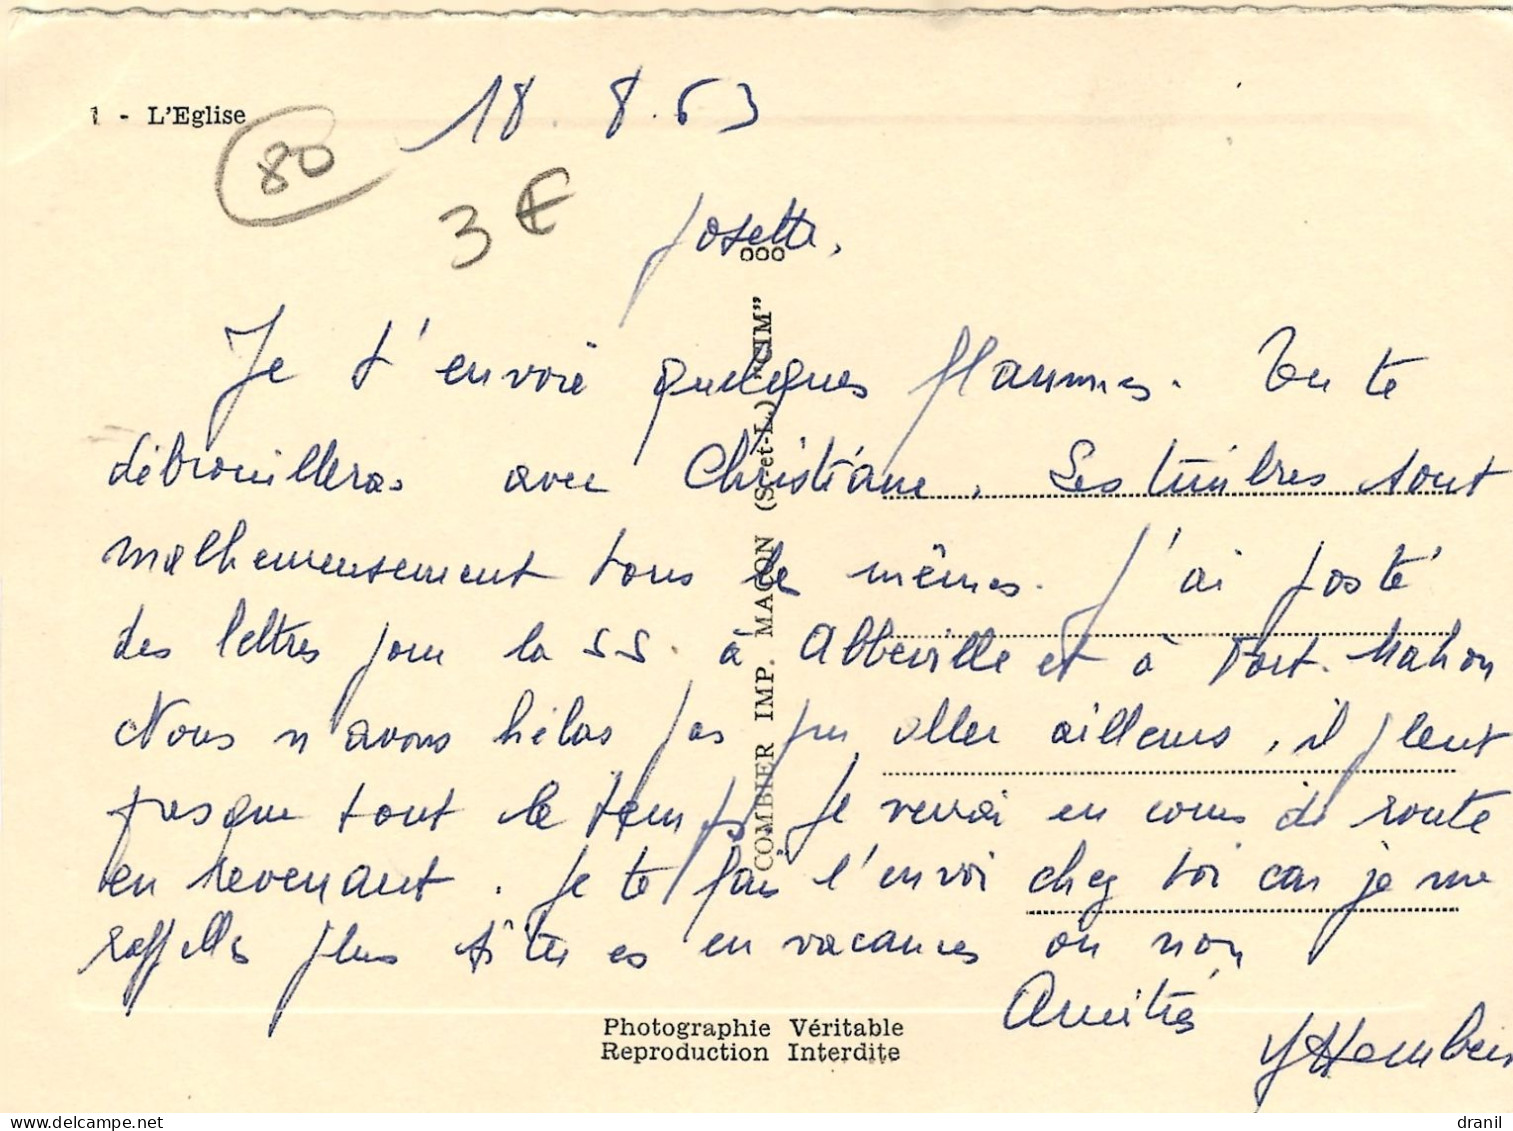 1 - L'Eglise
18.8.63
80
3 €
Josette,
Je t'envoie quelques flammes. Tu te
débrouilleras avec Christiane. Les timbres sont
malheureusement tous les mêmes. J'ai posté
des lettres pour la SS. à Abbeville et à Fort-Mahon
Nous n'avons hélas pas pu aller ailleurs, il pleut
presque tout le temps. Je verrai en cours de route
en revenant. Je te fais l'envoi chez toi car je me
rappelle plus si tu es en vacances ou non
Amitiés
COMBIER IMP. MACON (S.-et-L.) "CIM"
Photographie Véritable
Reproduction Interdite
dranil